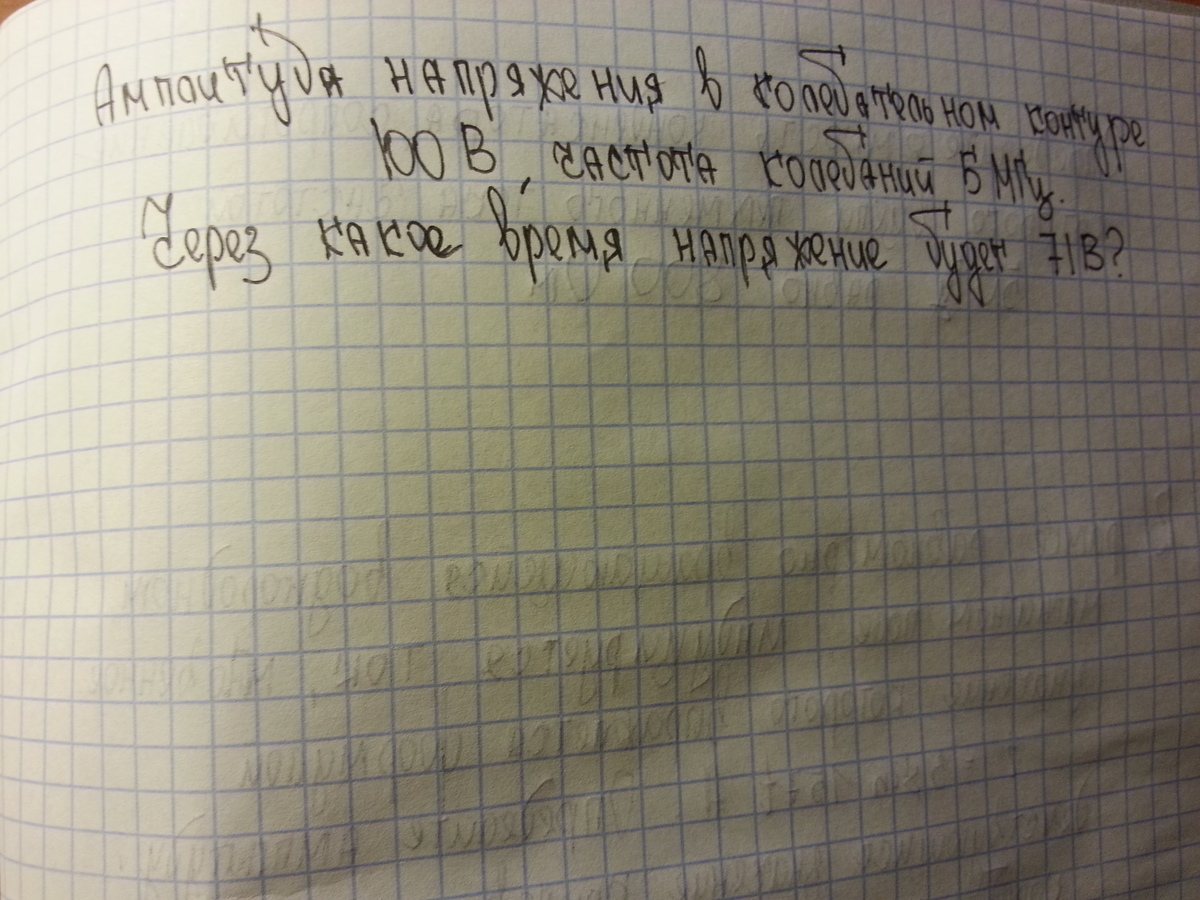 Амплитуда напряжения в колебательном контуре
100 В, частота колебаний 5 МГц.
Через какое время напряжение будет 71В?